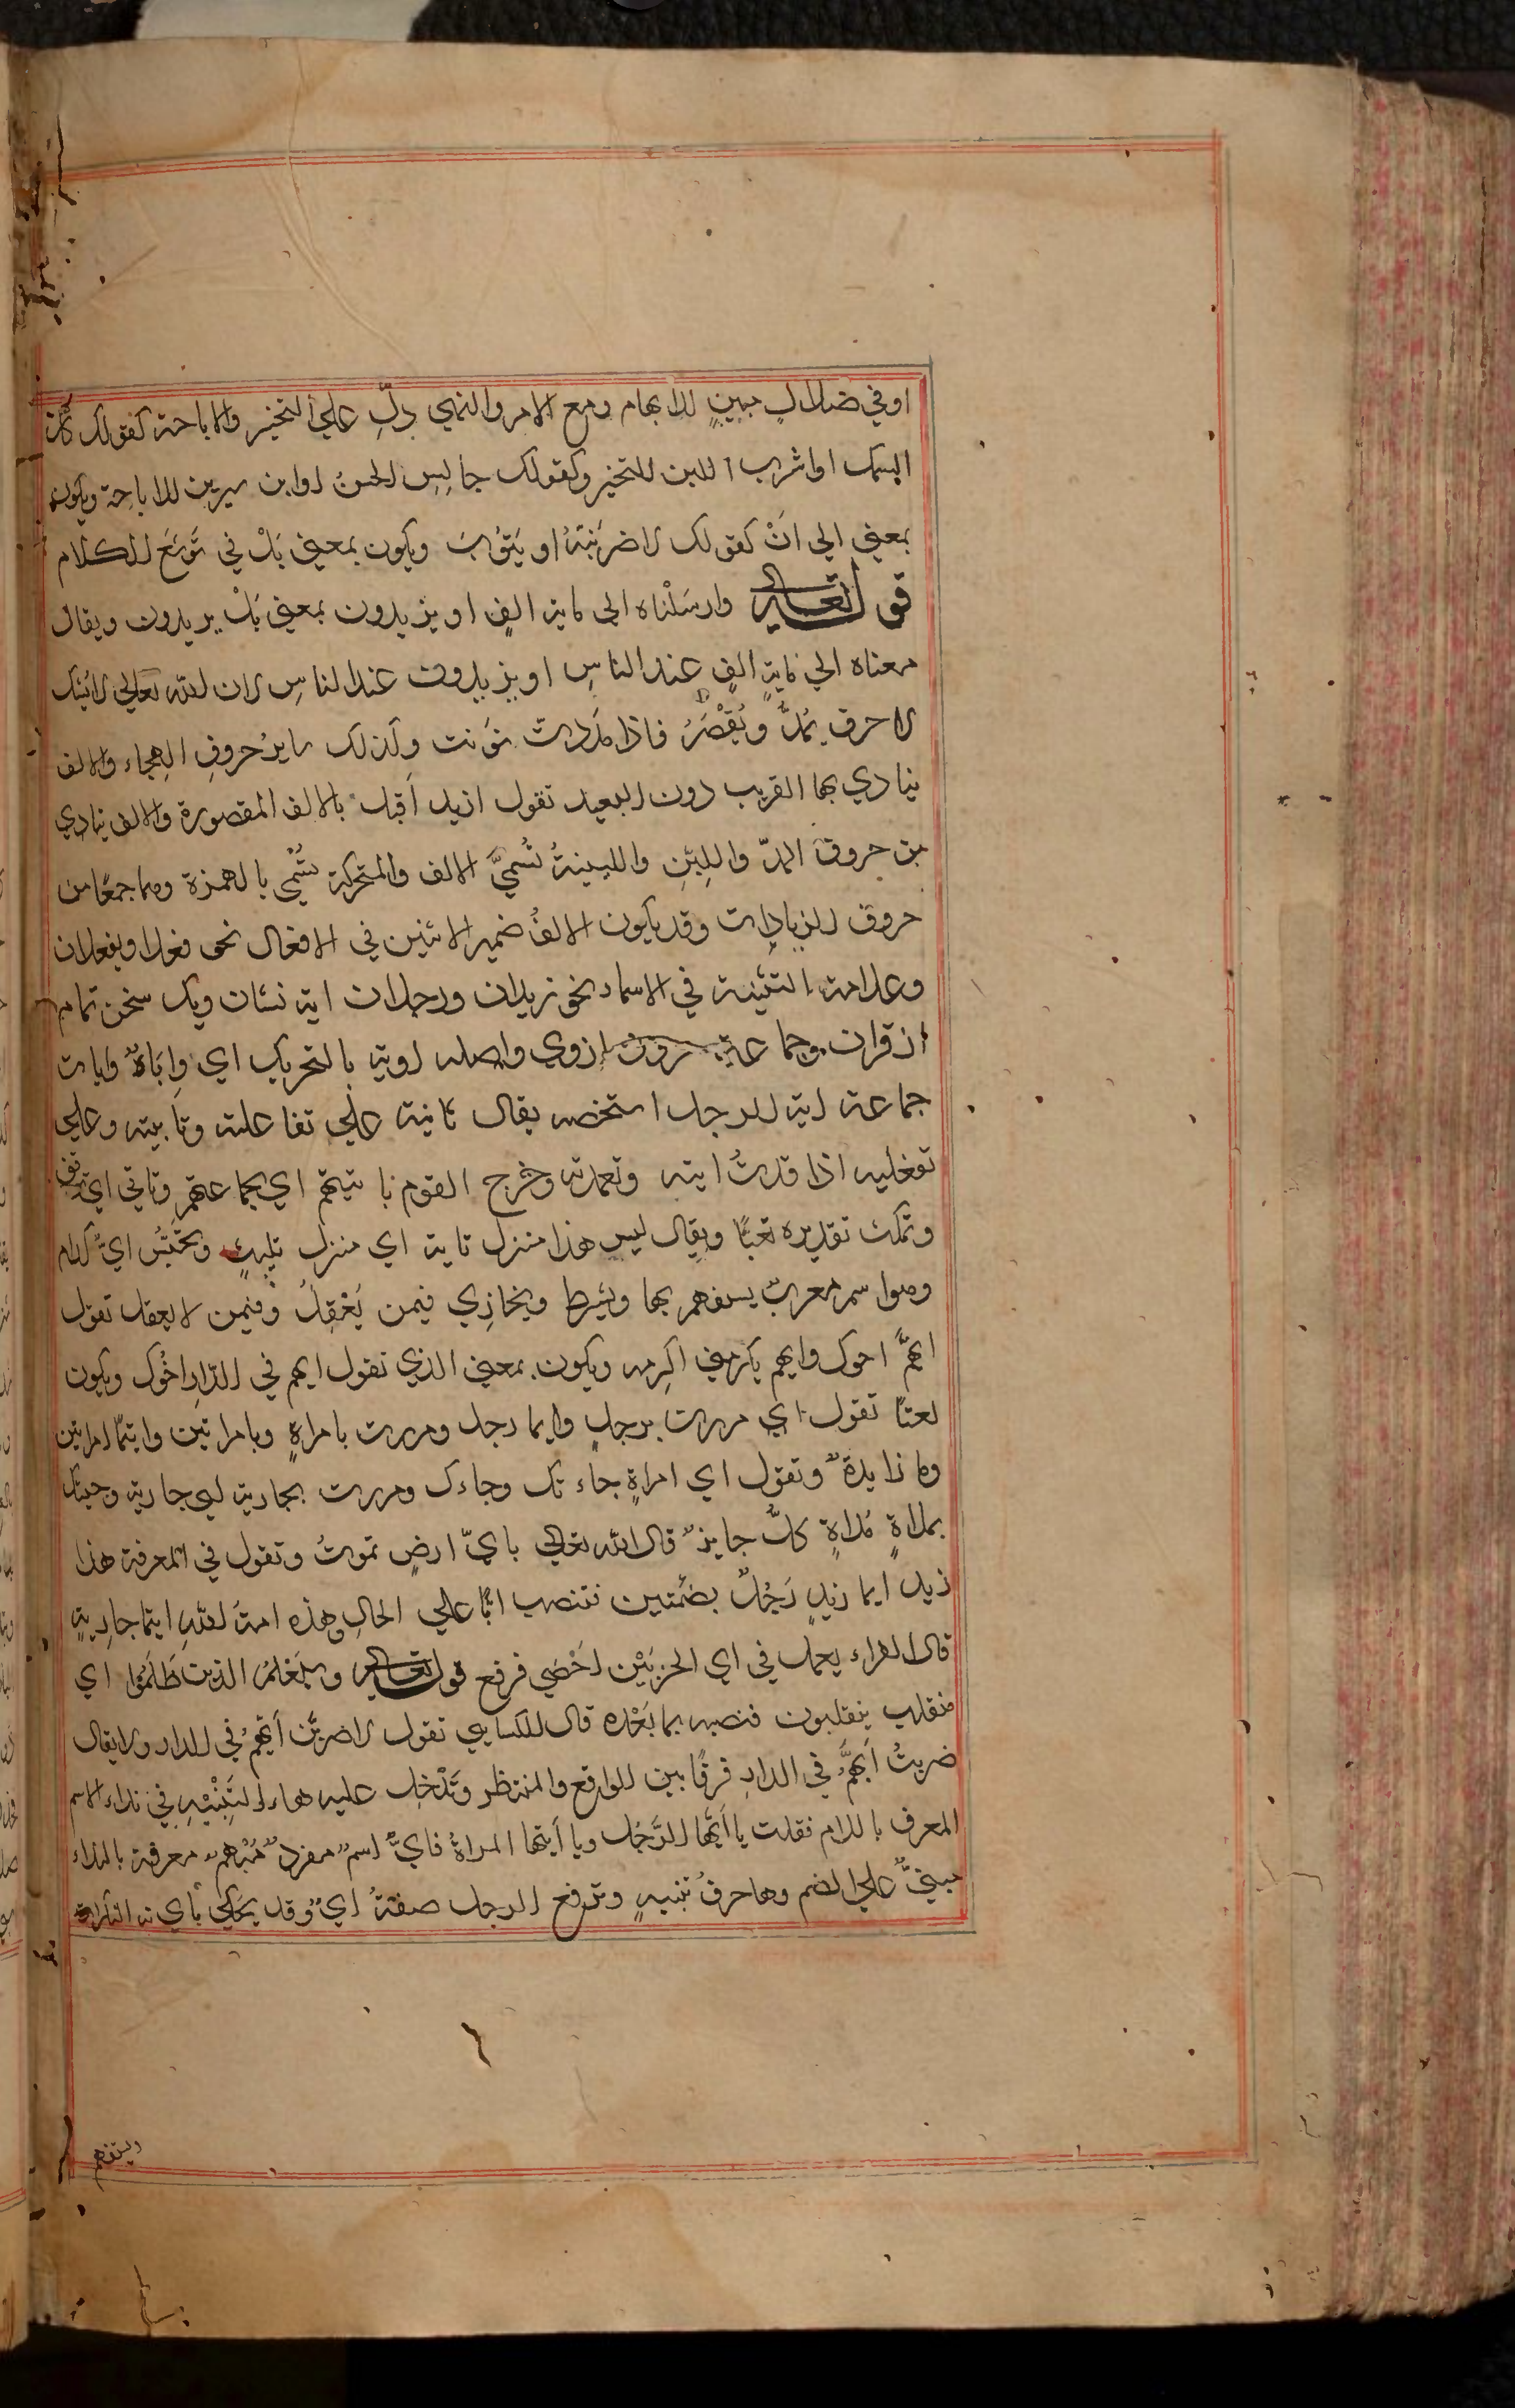 او في ضلال مبين للابهام ومع الامر والنهي دلّ علي التخير والاباحة كقولك كل
السمك او اشرب اللبن للتخير وكقولك جالِسِ الحسنُ او ابن سيرين للاباحة ويكون
بمعني الي انْ كقولك لاضربَنّهُ او يَتُوبَ ويكون بمعني بَلْ في توسّع الكلام
قوله تعالي وارسَلْناه الي ماية الفٍ او يزيدون بمعني بَلْ يزيدون ويقال
معناه الي مايةِ الفٍ عند الناسِ او يزيدون عند الناسِ لان الله تعالي لا يشك
ا حرف يُمَدُّ ويُقْصَرُ فاذا مَدَدت نوّنت وكذلك سايرُ حروفِ الهجاء والالف
ينادي بها القريب دون البعيد تقول ازيد اَقبل بالالف المقصورة والالف ينادي
من حروف المدّ واللِيْنِ واللينةُ تُسمّيَ الالف والمتحركة تُسمّي بالهمزة وهما جمعًا من
حروف الزيادات وقد يكون الالفُ ضمير الاثنين في الافعال نحو فعلا ويفعلان
وعلامة التثنية في الاسماء نحو زيدان ورجلان اية نشان ويك سخن تمام
از قران وجماعة اروى واصله اوية بالتحريك اي وايَاهٌ وايات
جماعة اية الرجل استخصه يقال تانية علي تفاعلته وتاييته وعلي
تفعليه اذا قدتُ ايته وتعمدته وخرج القوم باييتهم اي بجماعتهم وتاتي اي توقف
وتمكث تقديره تعيّا ويقال ليس هذا منزل تاية اي منزل تلبثٍ وتحبّسٍ ايٌّ كدام
وهو اسم معربٌ يستفهم بها ويشرط ويجازِي فيمن يَعْقِلُ وفيمن لا يعقل تقول
ايّهمُ اخوك وايهم يكرمني اكرمه ويكون بمعني الذي تقول ايهم في الدار اخُوك ويكون
نعتًا تقول اي مررت برجلٍ وايما رجل ومررت بامراةٍ وبامراتين وايتما امراتين
وما زايدةٌ وتقول اي امراةٍ جاءتك وجاءك ومررت بجارية اي جارية وحيتك
بملاةٍ مُلاةٍ كلٌ جايز قال الله تعالي بايّ ارضٍ تموتُ وتقول في المعرفة هذا
زيد ايما زيدٍ رَجُلٌ بضمّتين فتنصب ايّا علي الحالِ وهذه امةُ اللهِ ايتما جارِيةٍ
قال الفراء يعمل في اي الحزبَيْن اَحْصَي فرفع قوله تعالي وسَيَعْلمُ الذين ظَلَمُوا اي
منقلب ينقلبون فنصبه بما بَعْده قال الكسايي تقول لاضربَنّ ايّهمُ في الدار ولا يقال
ضربتُ اَيّهمُ في الدارِ فرقًا بين الواقع والمنتظر وتَدْخل عليه هاء لِلتَنْبْيهِ في نداء الاسم
المعرف باللام فقلت يا اَيّها الرَّجُل ويا اَيتها المراةُ فايٌّ اسمٌ مفردٌ مُبْهمٌ معرفة بالنداء
مبنيٌّ علي الضم وها حرفُ تنبيهٍ وترفع الرجل صفةُ ايٌّ وقد يحكي باي النكرات
ويستفهم